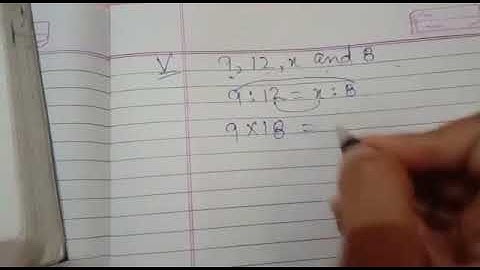 V 9, 12, x and 8
9 : 12 = x : 8
9 × 18 =